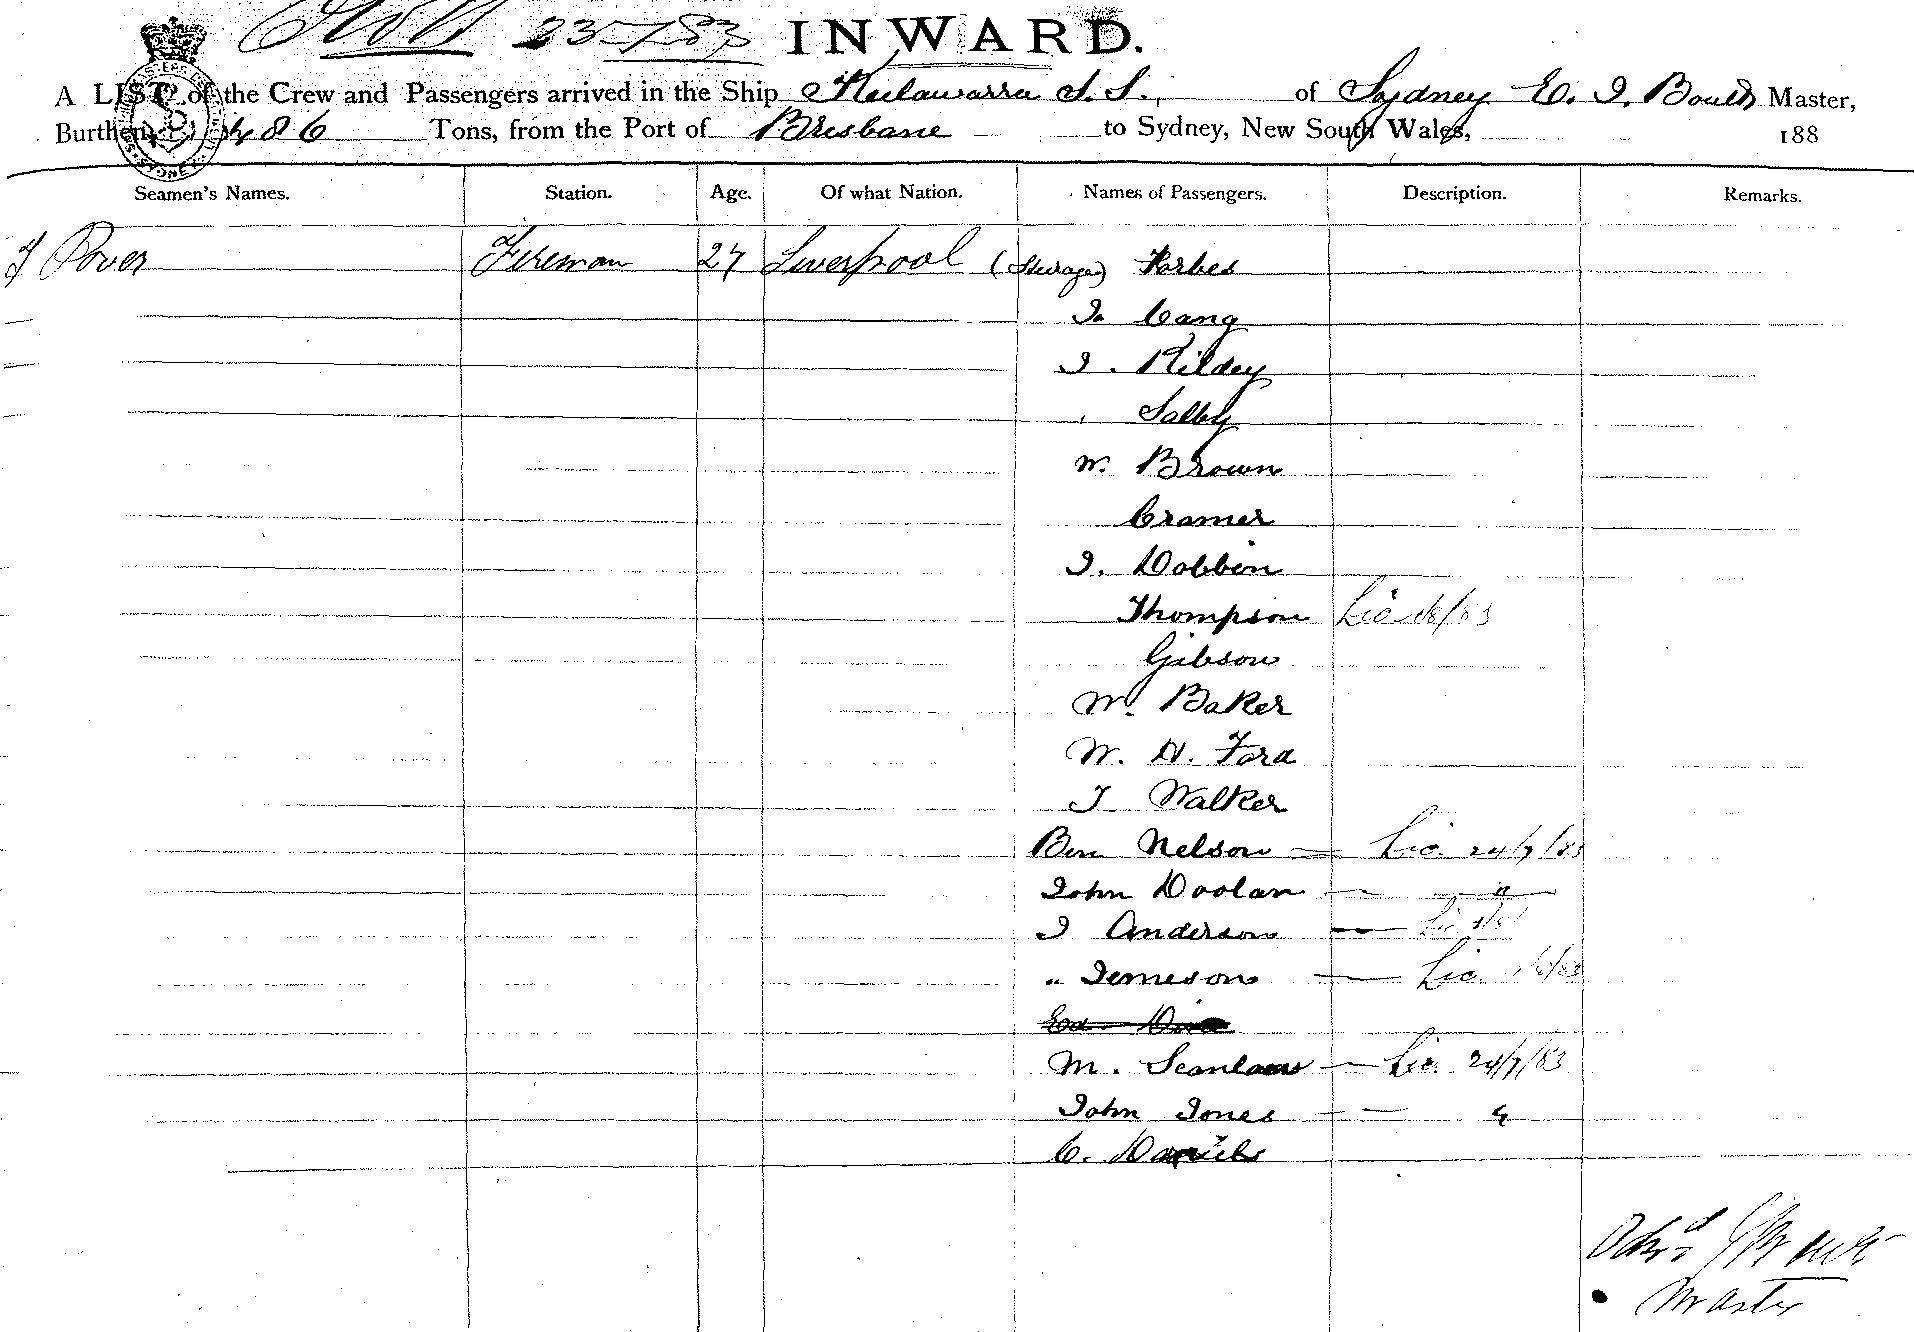 23/7/83 INWARD.
A LIST of the Crew and Passengers arrived in the Ship Keilawarra S.S., of Sydney E. I. Boult Master,
Burthen 486 Tons, from the Port of Brisbane to Sydney, New South Wales, 188
Seamen's Names. Station. Age. Of what Nation. Names of Passengers. Description. Remarks.
J Power Fireman 27 Liverpool (Steerage) Forbes
Cang
J. Kildey
Salby
W. Brown
Cramer
J. Dobbin
Thompson Lic /8/83
Gibson
W. Baker
W. H. Ford
J Walker
Ben Nelson — Lic. 24/7/83
John Doolan — "
J Anderson — Lic
" Jemeson — Lic. /8/83
Ed
M. Scanlan — Lic. 24/7/83
John Jones — "
C. Daniels
Master